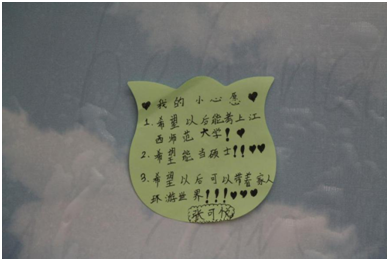 ♥我的小心愿♥
1.希望以后能考上江
西师范大学!♥
2.希望能当硕士!!♥♥
3.希望以后可以带着家人
环游世界!!!♥♥♥
张可